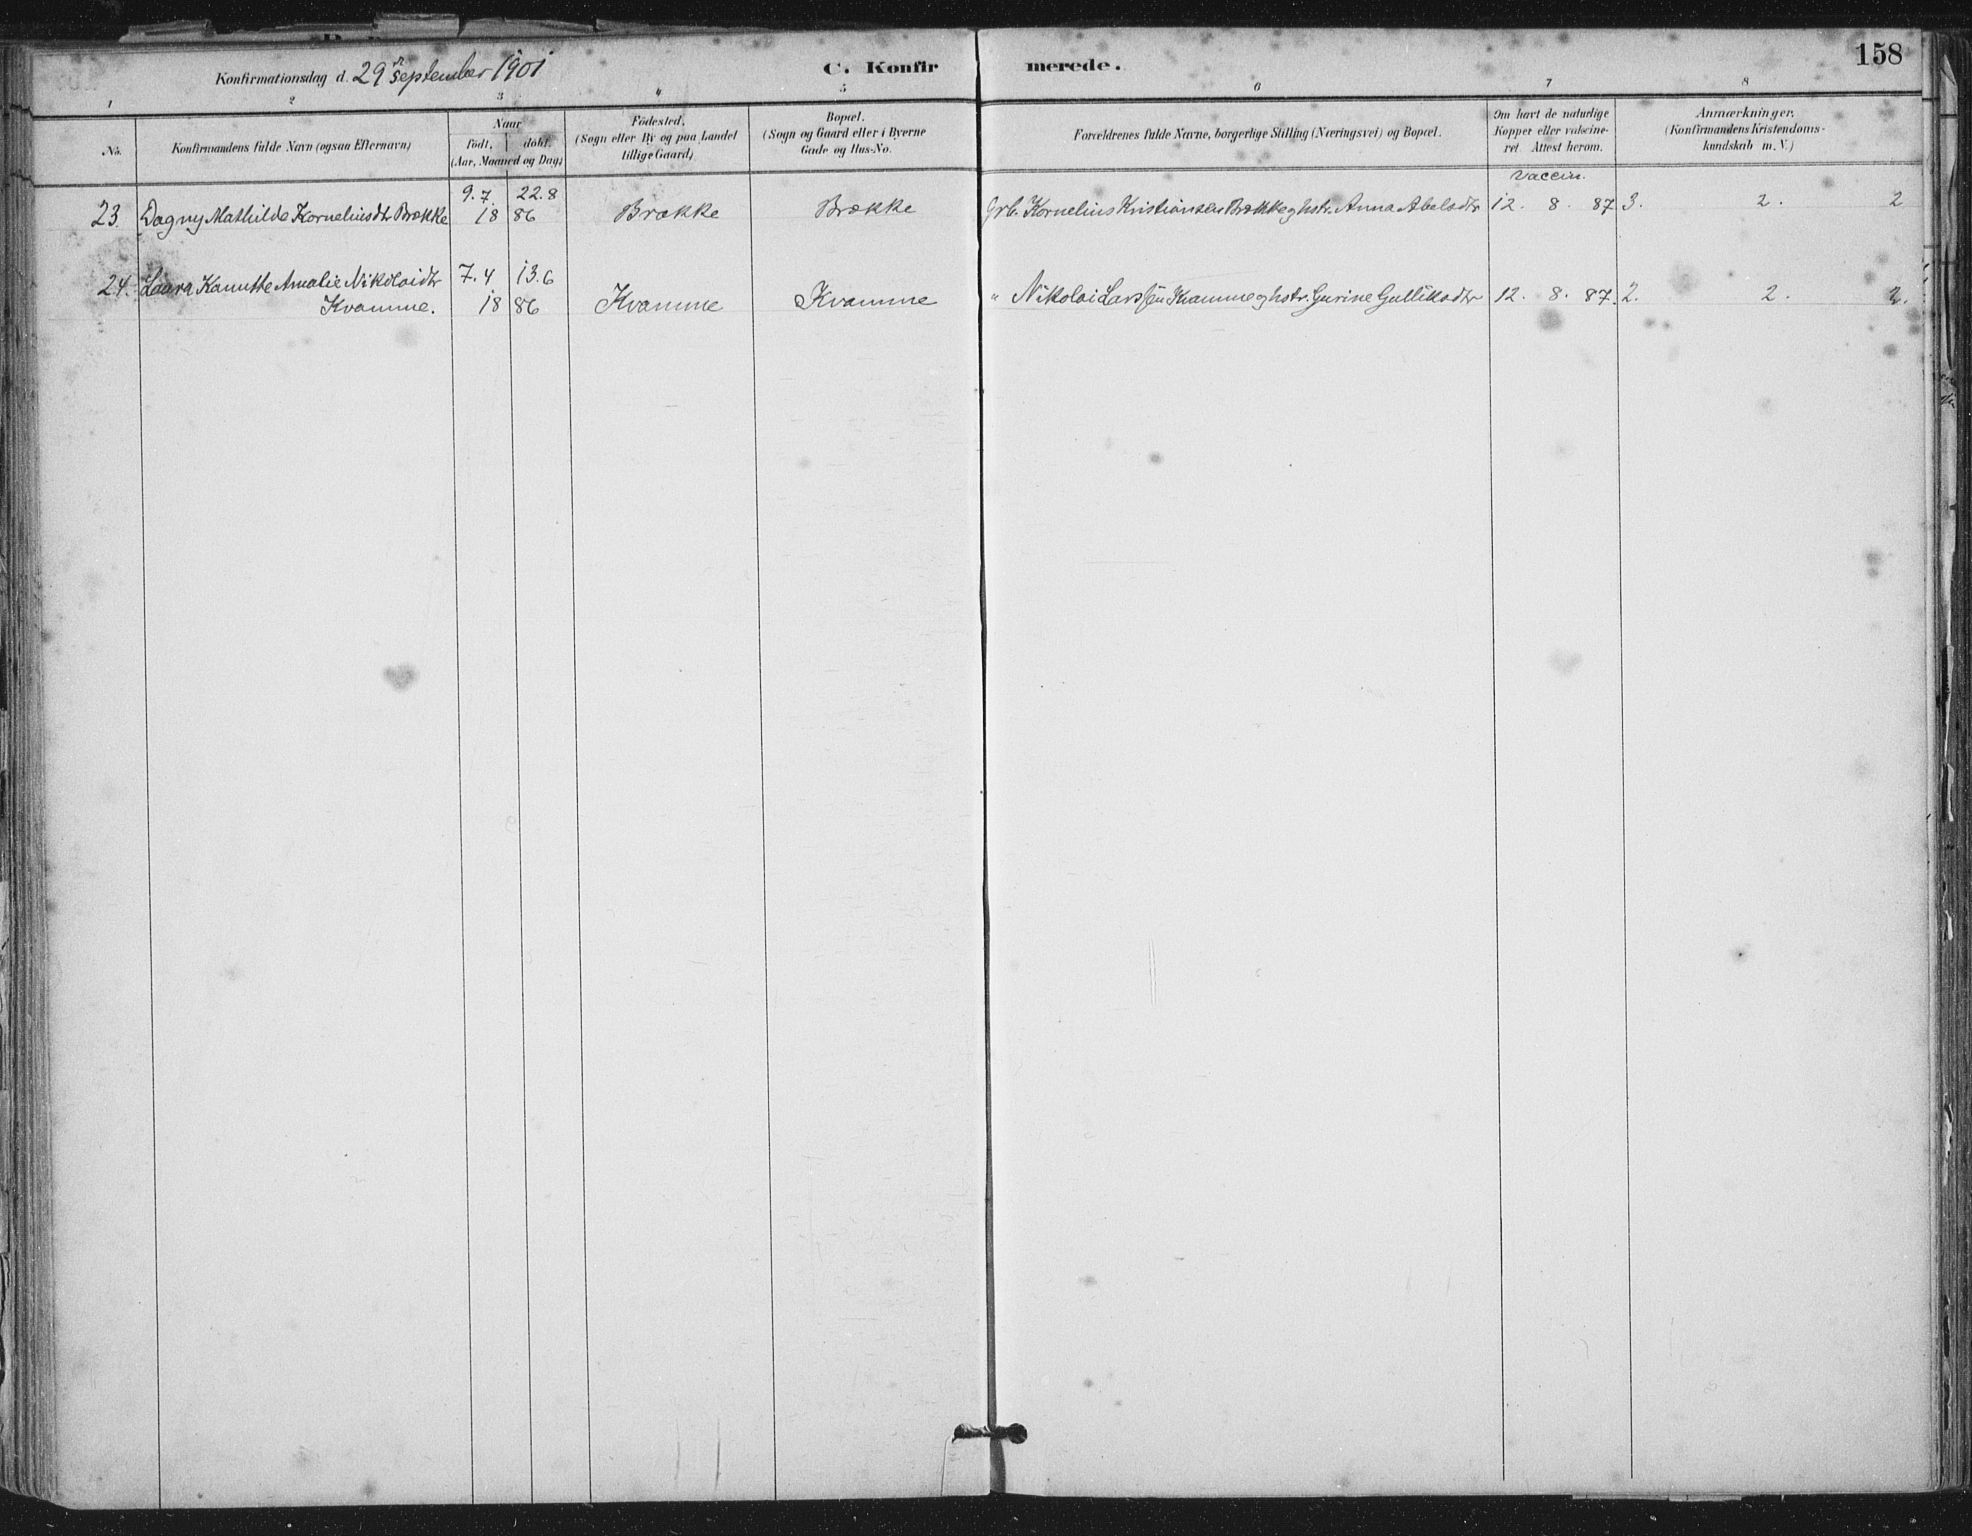 158
Konfirmationsdag d. 29 september 1901
C. Konfirmerede.
1 2 3 4 5 6 7 8
No.
Konfirmandens fulde Navn (ogsaa Efternavn)
Naar
født, døbt,
(Aar, Maaned og Dag)
Födested.
(Sogn eller By og paa Landet
tillige Gaard)
Bopæl.
(Sogn og Gaard eller i Byerne
Gade og Hus-No.
Forældrenes fulde Navne, borgerlige Stilling (Næringsvei) og Bopæl.
Om havt de naturlige
Kopper eller vaksine-
ret. Attest herom.
Anmærkninger.
(Konfirmandens Kristendoms-
kundskab m. V.)
Vaccin.
9.7. 22.8
23. Dagny Mathilde Korneliusdtr Brække 18 86 Brække Brække Grb. Kornelius Kristiansen Brække og hstr. Anna Abelsdtr 12. 8. 87 3. 2. 2
7.4 13.6
24. Laura Kanutte Amalie Nikolaidtr
Kvamme. 18 86 Kvamme Kvamme " Nikolai Larssen Kvamme og hstr. Gurine Gulliksdtr 12. 8. 87. 2. 2. 2.